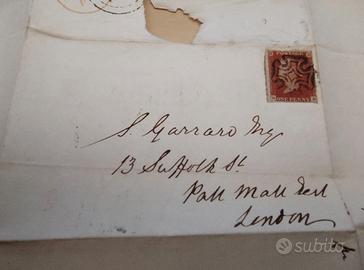 POSTAGE
ONE PENNY
S. Garrard Esq
13 Suffolk St
Pall Mall East
London
subito